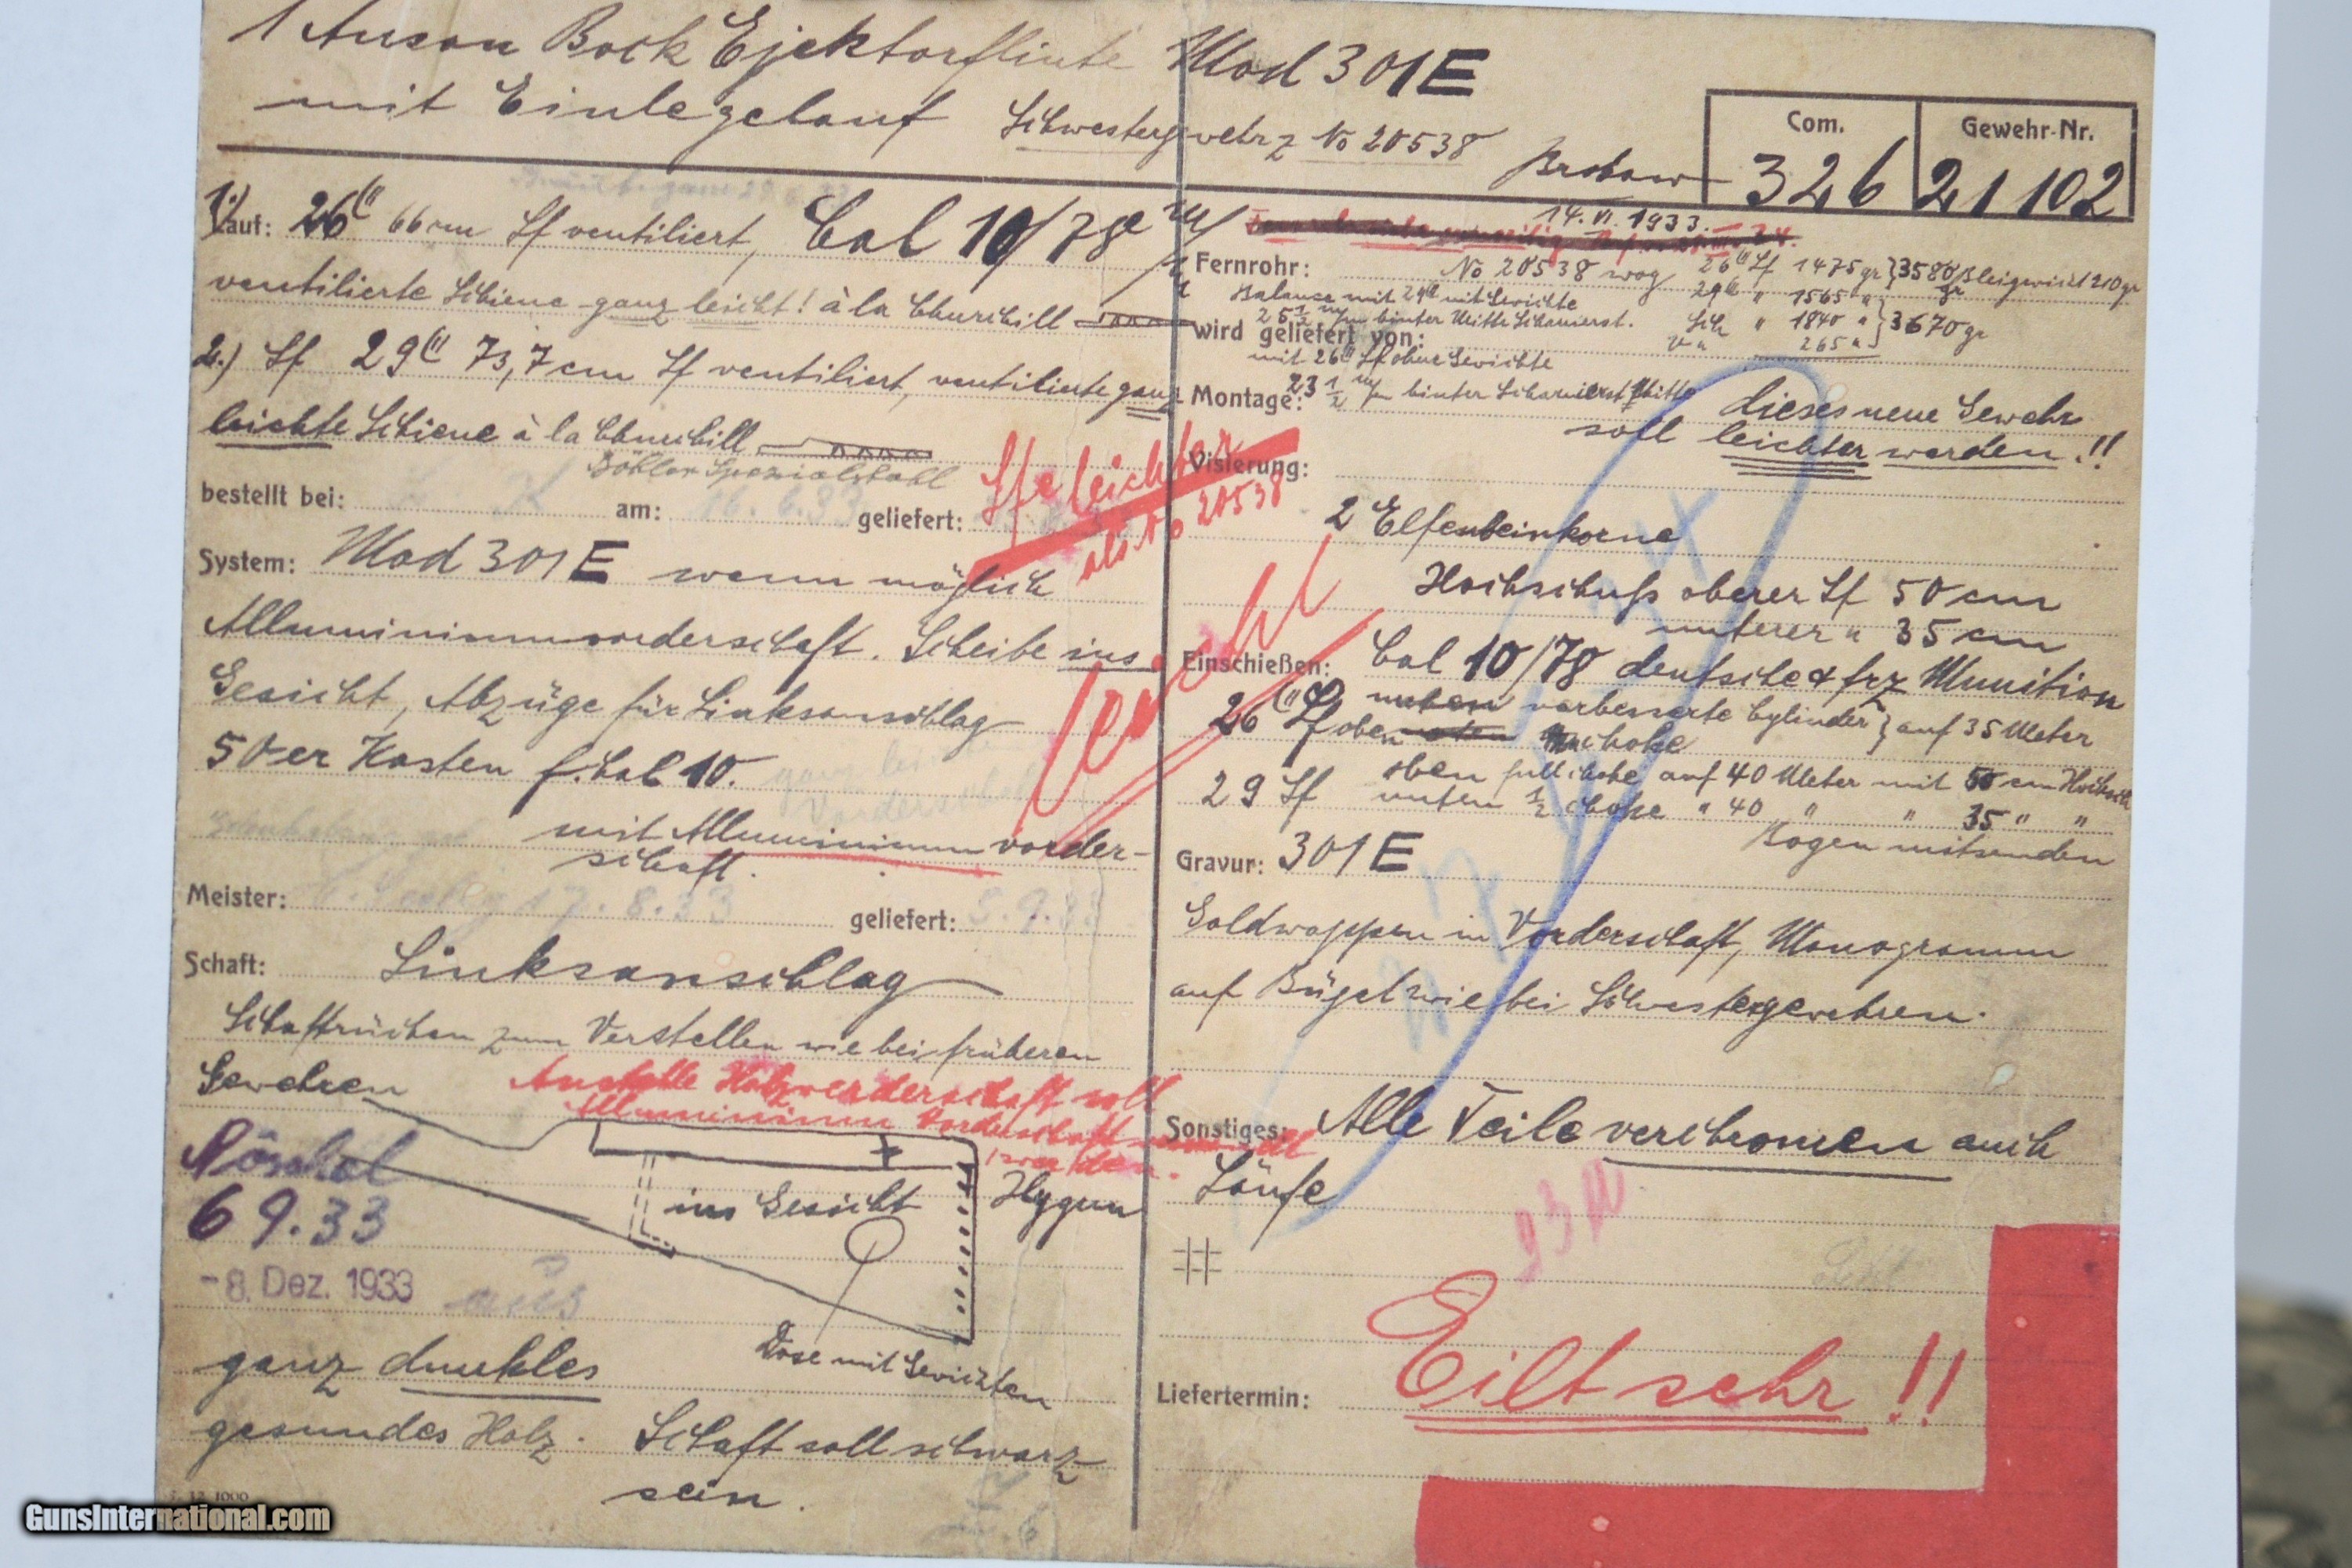 1 Anson Bock Ejektorflinte Mod 301E
mit Einlegelauf Schwestergewehr z No 20538
Com. Gewehr-Nr.
326 21102
14. VI. 1933.
1.) Lauf: 26" 66 cm Lf ventiliert, Cal 10/78
ventilierte Schiene ganz leicht! à la Churchill
2.) Lf 29" 73,7 cm Lf ventiliert, ventilierte ganz
leichte Schiene à la Churchill
Böhler Spezialstahl
bestellt bei: am: 16.6.33 geliefert:
Lfe leichter
als No 20538
System: Mod 301E wenn möglich
Alluminiumvorderschaft. Scheibe ins
Gesicht, Abzüge für Linksanschlag
50er Kasten f. Cal 10.
mit Alluminiumvorder-
schaft.
Meister: 17.8.33 geliefert: 5.9.33
Schaft: Linksanschlag
Schaftrücken zum Verstellen wie bei früheren
Gewehren
Anstelle Holzvorderschaft soll
Alluminium Vorderschaft
werden.
6 9.33
ins Gesicht
-8. Dez. 1933
Dose mit Gewichten
ganz dunkles
gesundes Holz. Schaft soll schwarz
sein.
Fernrohr: No 20538 wog 26" Lf 1475 gr } 3580 gr Bleigewicht 210 gr
29" " 1565 "
Balance mit 29" mit Gewichte
25 1/2 m/m hinter Mitte Scharnierst.
Sch " 1840 " } 3670 gr
V " 265 "
wird geliefert von:
mit 26" Lf ohne Gewichte
Montage: 23 1/2 m/m hinter Scharnierst Mitte
dieses neue Gewehr
soll leichter werden.!!
Visierung:
2 Elfenbeinkorne
Hochschuß oberer Lf 50 cm
unterer " 35 cm
Einschießen: Cal 10/78 deutsche & frz Munition
26" Lf unten verbesserte Cylinder } auf 35 Meter
oben choke
29 Lf oben full choke auf 40 Meter mit 50 cm Hochsch
unten 1/2 choke " 40 " " 35 " "
Bogen mitsenden
Gravur: 301E
Goldwappen in Vorderschaft, Monogramm
auf Bügel wie bei Schwestergewehren.
Sonstiges: Alle Teile verchromen auch
Läufe
Liefertermin: Eilt sehr!!
GunsInternational.com